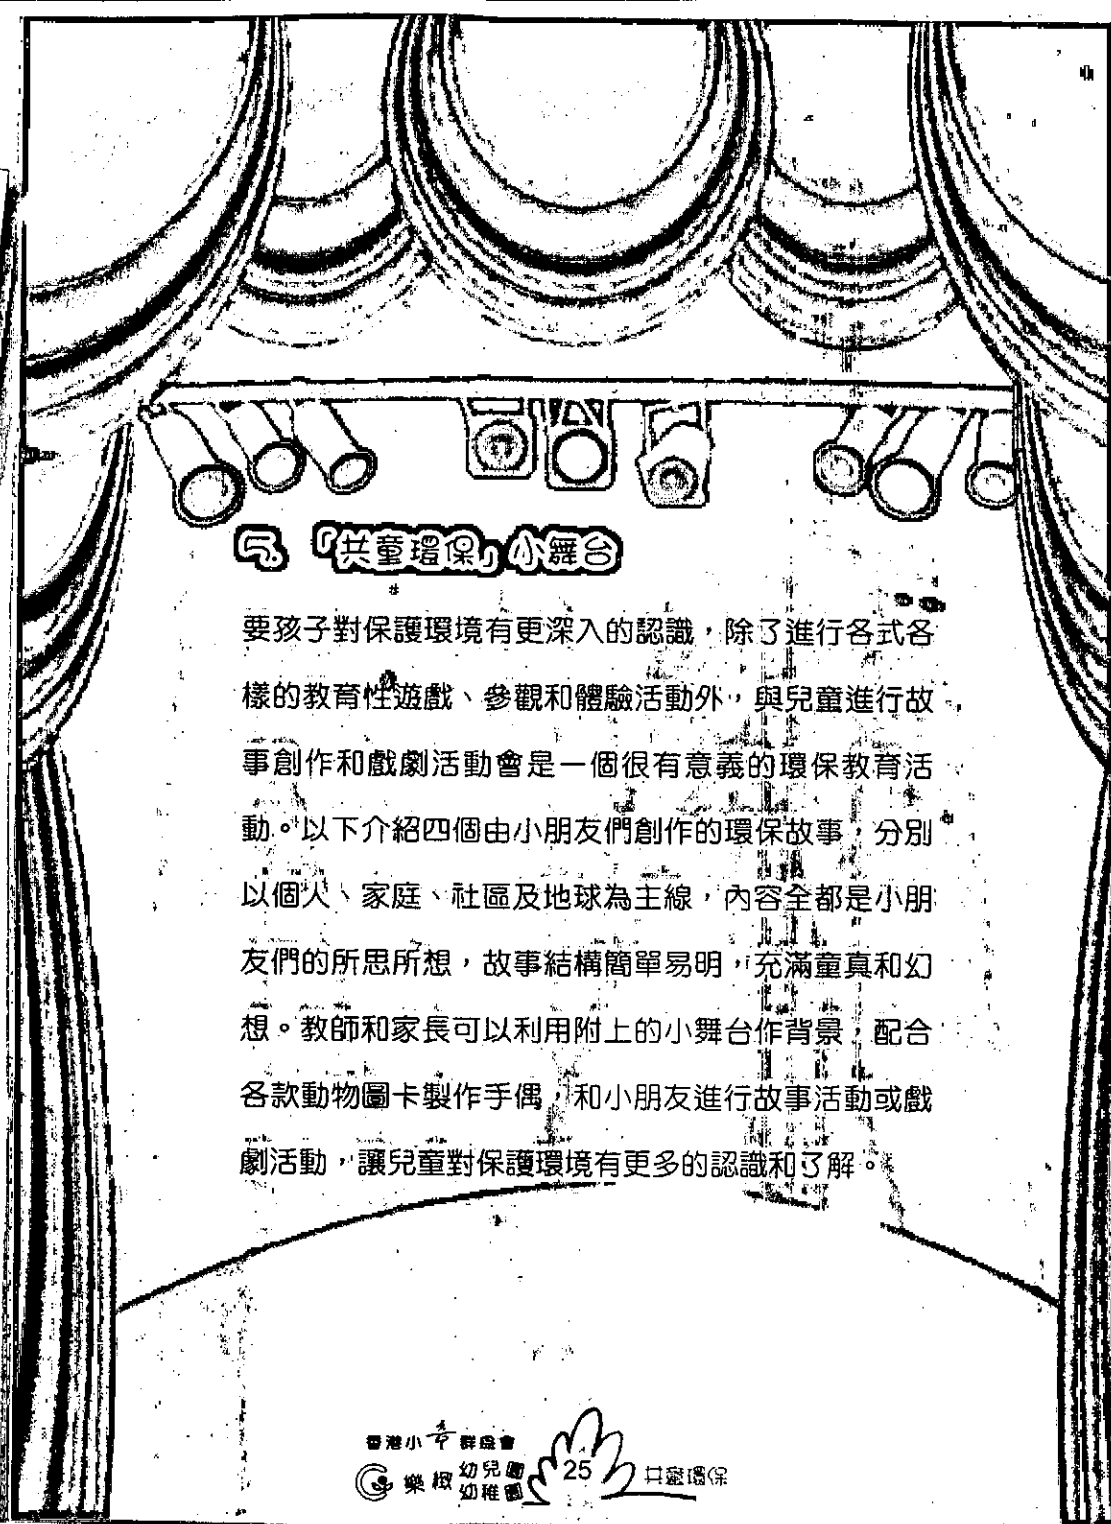 5. 「共童環保」小舞台
要孩子對保護環境有更深入的認識，除了進行各式各
樣的教育性遊戲、參觀和體驗活動外，與兒童進行故
事創作和戲劇活動會是一個很有意義的環保教育活
動。以下介紹四個由小朋友們創作的環保故事，分別
以個人、家庭、社區及地球為主線，內容全都是小朋
友們的所思所想，故事結構簡單易明，充滿童真和幻
想。教師和家長可以利用附上的小舞台作背景，配合
各款動物圖卡製作手偶，和小朋友進行故事活動或戲
劇活動，讓兒童對保護環境有更多的認識和了解。
香港小童群益會
樂緻幼兒園
幼稚園
25
共童環保